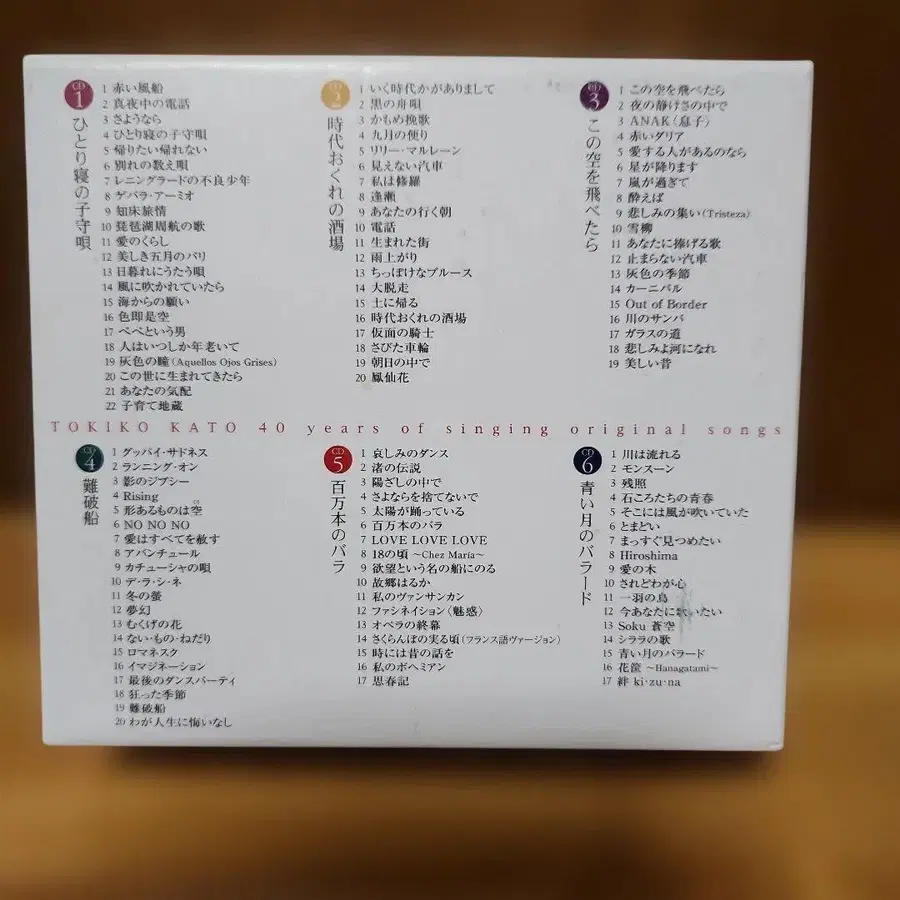 CD 1
ひとり寝の子守唄
1 赤い風船
2 真夜中の電話
3 さようなら
4 ひとり寝の子守唄
5 帰りたい帰れない
6 別れの数え唄
7 レニングラードの不良少年
8 ゲバラ・アーミオ
9 知床旅情
10 琵琶湖周航の歌
11 愛のくらし
12 美しき五月のパリ
13 日暮れにうたう唄
14 風に吹かれていたら
15 海からの願い
16 色即是空
17 ペペという男
18 人はいつしか年老いて
19 灰色の瞳(Aquellos Ojos Grises)
20 この世に生まれてきたら
21 あなたの気配
22 子育て地蔵
CD 2
時代おくれの酒場
1 いく時代かがありまして
2 黒の舟唄
3 かもめ挽歌
4 九月の便り
5 リリー・マルレーン
6 見えない汽車
7 私は修羅
8 逢瀬
9 あなたの行く朝
10 電話
11 生まれた街
12 雨上がり
13 ちっぽけなブルース
14 大脱走
15 土に帰る
16 時代おくれの酒場
17 仮面の騎士
18 さびた車輪
19 朝日の中で
20 鳳仙花
CD 3
この空を飛べたら
1 この空を飛べたら
2 夜の静けさの中で
3 ANAK(息子)
4 赤いダリア
5 愛する人があるのなら
6 星が降ります
7 嵐が過ぎて
8 酔えば
9 悲しみの集い(Tristeza)
10 雪柳
11 あなたに捧げる歌
12 止まらない汽車
13 灰色の季節
14 カーニバル
15 Out of Border
16 川のサンバ
17 ガラスの道
18 悲しみよ河になれ
19 美しい昔
TOKIKO KATO 40 years of singing original songs
CD 4
難破船
1 グッバイ・サドネス
2 ランニング・オン
3 影のジプシー
4 Rising
5 形あるものは空
6 NO NO NO
7 愛はすべてを赦す
8 アバンチュール
9 カチューシャの唄
10 デ・ラ・シ・ネ
11 冬の螢
12 夢幻
13 むくげの花
14 ない・もの・ねだり
15 ロマネスク
16 イマジネーション
17 最後のダンスパーティ
18 狂った季節
19 難破船
20 わが人生に悔いなし
CD 5
百万本のバラ
1 哀しみのダンス
2 渚の伝説
3 陽ざしの中で
4 さよならを捨てないで
5 太陽が踊っている
6 百万本のバラ
7 LOVE LOVE LOVE
8 18の頃 〜Chez María〜
9 欲望という名の船にのる
10 故郷はるか
11 私のヴァンサンカン
12 ファシネイション〈魅惑〉
13 オペラの終幕
14 さくらんぼの実る頃(フランス語ヴァージョン)
15 時には昔の話を
16 私のボヘミアン
17 思春記
CD 6
青い月のバラード
1 川は流れる
2 モンスーン
3 残照
4 石ころたちの青春
5 そこには風が吹いていた
6 とまどい
7 まっすぐ見つめたい
8 Hiroshima
9 愛の木
10 されどわが心
11 一羽の鳥
12 今あなたに歌いたい
13 Soku 蒼空
14 シララの歌
15 青い月のバラード
16 花筐 〜Hanagatami〜
17 絆 ki・zu・na